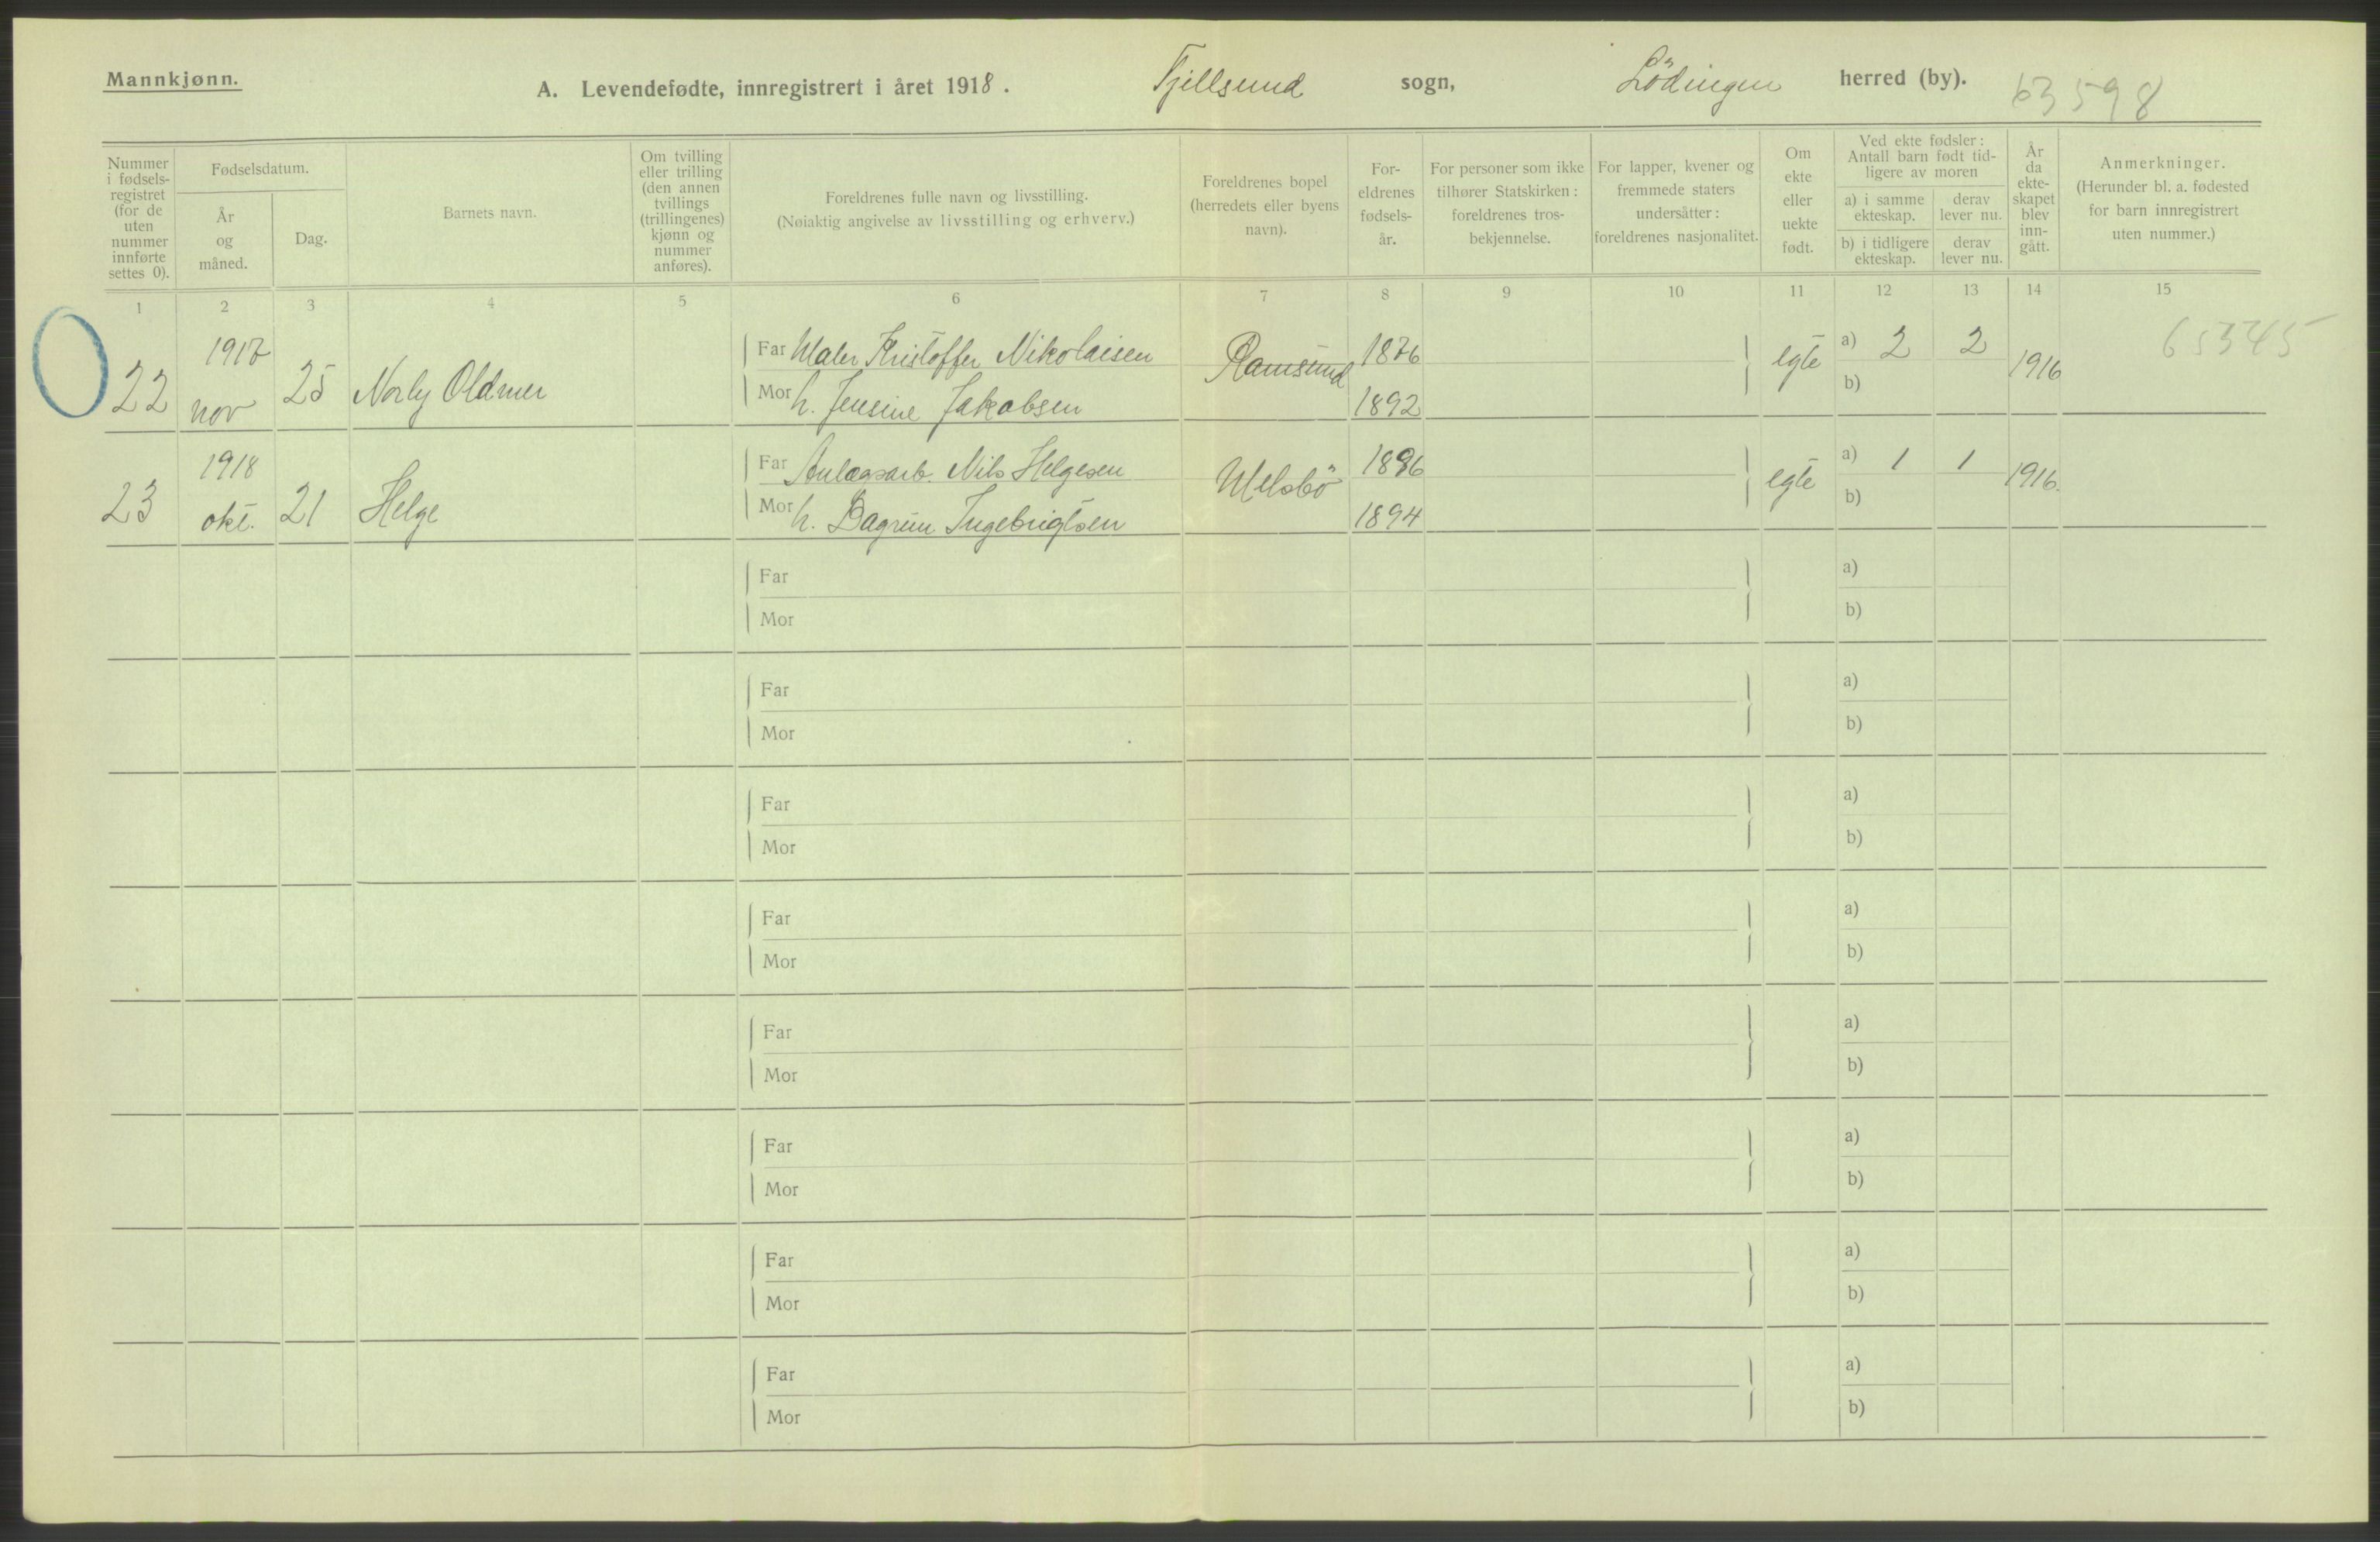 Mannkjønn.
A. Levendefødte, innregistrert i året 1918. Tjellsund sogn, Lödingen herred (by). 63598
Nummer i fødsels-registret (for de uten nummer innførte settes 0).
Fødselsdatum.
År og måned.
Dag.
Barnets navn.
Om tvilling eller trilling (den annen tvillings (trillingenes) kjønn og nummer anføres).
Foreldrenes fulle navn og livsstilling.
(Nøiaktig angivelse av livsstilling og erhverv.)
Foreldrenes bopel (herredets eller byens navn).
For-eldrenes fødsels-år.
For personer som ikke tilhører Statskirken: foreldrenes tros-bekjennelse.
For lapper, kvener og fremmede staters undersåtter: foreldrenes nasjonalitet.
Om ekte eller uekte født.
Ved ekte fødsler: Antall barn født tid-ligere av moren
a) i samme ekteskap.
derav lever nu.
b) i tidligere ekteskap.
derav lever nu.
År da ekte-skapet blev inn-gått.
Anmerkninger.
(Herunder bl. a. fødested for barn innregistrert uten nummer.)
1 2 3 4 5 6 7 8 9 10 11 12 13 14 15
22 1917 nov 25 Norly Oldmer
Far Maler Kristoffer Nikolaisen Ramsund 1876 egte a) 2 2 1916 65345
Mor h. Jensine Jakobsen 1892 b)
23 1918 okt. 21 Helge
Far Anlægsarb. Nils Helgesen 1896 egte a) 1 1 1916.
Mor h. Dagrun Ingebrigtsen 1894 b)
Far a)
Mor b)
Far a)
Mor b)
Far a)
Mor b)
Far a)
Mor b)
Far a)
Mor b)
Far a)
Mor b)
Far a)
Mor b)
Far a)
Mor b)